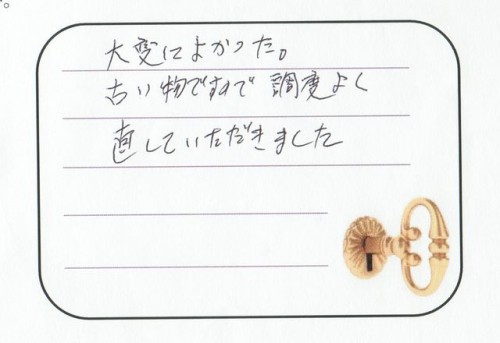 。
大変によかった。
古い物ですので調度よく
直していただきました